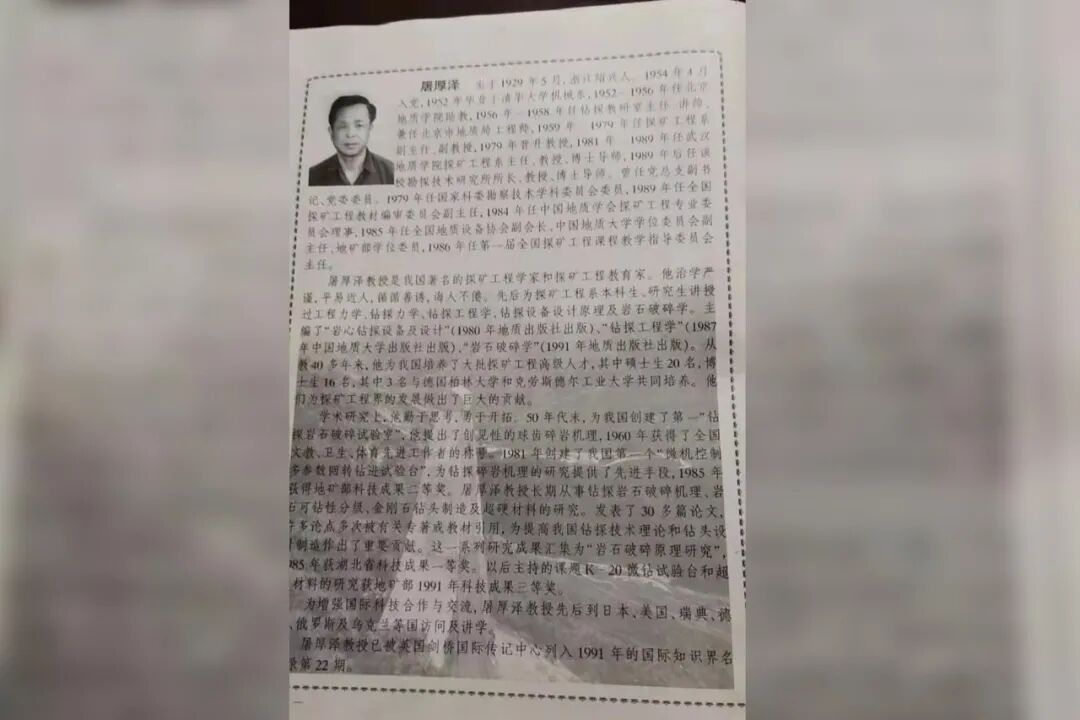 屠厚泽 生于1929年5月,浙江绍兴人。1954年4月
入党,1952年毕业于清华大学机械系,1952-1956年任北京
地质学院助教,1956年-1958年任钻探教研室主任、讲师,
兼任北京市地质局工程师,1959年 1979年任探矿工程系
副主任、副教授,1979年晋升教授,1981年 1989年任武汉
地质学院探矿工程系主任、教授、博士导师,1989年后任该
校勘探技术研究所所长、教授、博士导师。曾任党总支副书
记、党委委员。1979年任国家科委勘察技术学科委员会委员,1989年任全国
探矿工程教材编审委员会副主任,1984年任中国地质学会探矿工程专业委
员会理事,1985年任全国地质设备协会副会长、中国地质大学学位委员会副
主任、地矿部学位委员,1986年任第一届全国探矿工程课程教学指导委员会
主任。
屠厚泽教授是我国著名的探矿工程学家和探矿工程教育家。他治学严
谨,平易近人,循循善诱,诲人不倦。先后为探矿工程系本科生、研究生讲授
过工程力学、钻探力学、钻探工程学、钻探设备设计原理及岩石破碎学。主
编了“岩心钻探设备及设计”(1980年地质出版社出版)、“钻探工程学”(1987
年中国地质大学出版社出版)、“岩石破碎学”(1991年地质出版社出版)。从
教40多年来,他为我国培养了大批探矿工程高级人才,其中硕士生20名,博
士生16名,其中3名与德国柏林大学和克劳斯德尔工业大学共同培养。他
们为探矿工程界的发展做出了巨大的贡献。
学术研究上,他勤于思考,勇于开拓。50年代末,为我国创建了第一“钻
探岩石破碎试验室”,他提出了创见性的球齿碎岩机理,1960年获得了全国
文教、卫生、体育先进工作者的称号。1981年创建了我国第一个“微机控制
多参数回转钻进试验台”,为钻探碎岩机理的研究提供了先进手段,1985年
获得地矿部科技成果二等奖。屠厚泽教授长期从事钻探岩石破碎机理、岩
石可钻性分级、金刚石钻头制造及超硬材料的研究。发表了30多篇论文,
许多论点多次被有关专著或教材引用,为提高我国钻探技术理论和钻头设
计制造作出了重要贡献。这一系列研究成果汇集为“岩石破碎原理研究”,
985年获湖北省科技成果一等奖。以后主持的课题K-20微钻试验台和超
材料的研究获地矿部1991年科技成果三等奖。
为增强国际科技合作与交流,屠厚泽教授先后到日本、美国、瑞典、德
、俄罗斯及乌克兰等国访问及讲学。
屠厚泽教授已被英国剑桥国际传记中心列入1991年的国际知识界名
录第22期。